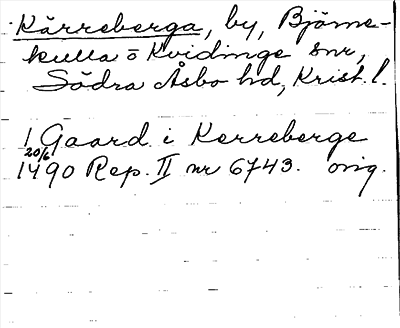 Kärreberga, by, Björne-
kulla o Kvidinge snr,
Södra Åsbo hd, Krist. l.
1 Gaard i Kerreberge
20/6
1490 Rep. II nr 6743. orig.